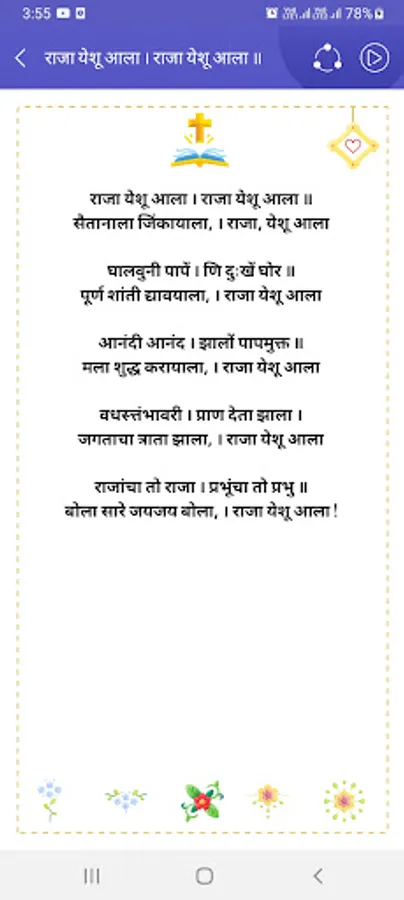 3:55
78%
राजा येशू आला । राजा येशू आला ॥
राजा येशू आला । राजा येशू आला ॥
सैतानाला जिंकायाला, । राजा, येशू आला
घालवुनी पापें । णि दुःखें घोर ॥
पूर्ण शांती द्यावयाला, । राजा येशू आला
आनंदी आनंद । झालों पापमुक्त ॥
मला शुद्ध करायाला, । राजा येशू आला
वधस्तंभावरी । प्राण देता झाला ।
जगताचा त्राता झाला, । राजा येशू आला
राजांचा तो राजा । प्रभूंचा तो प्रभु ॥
बोला सारे जयजय बोला, । राजा येशू आला!